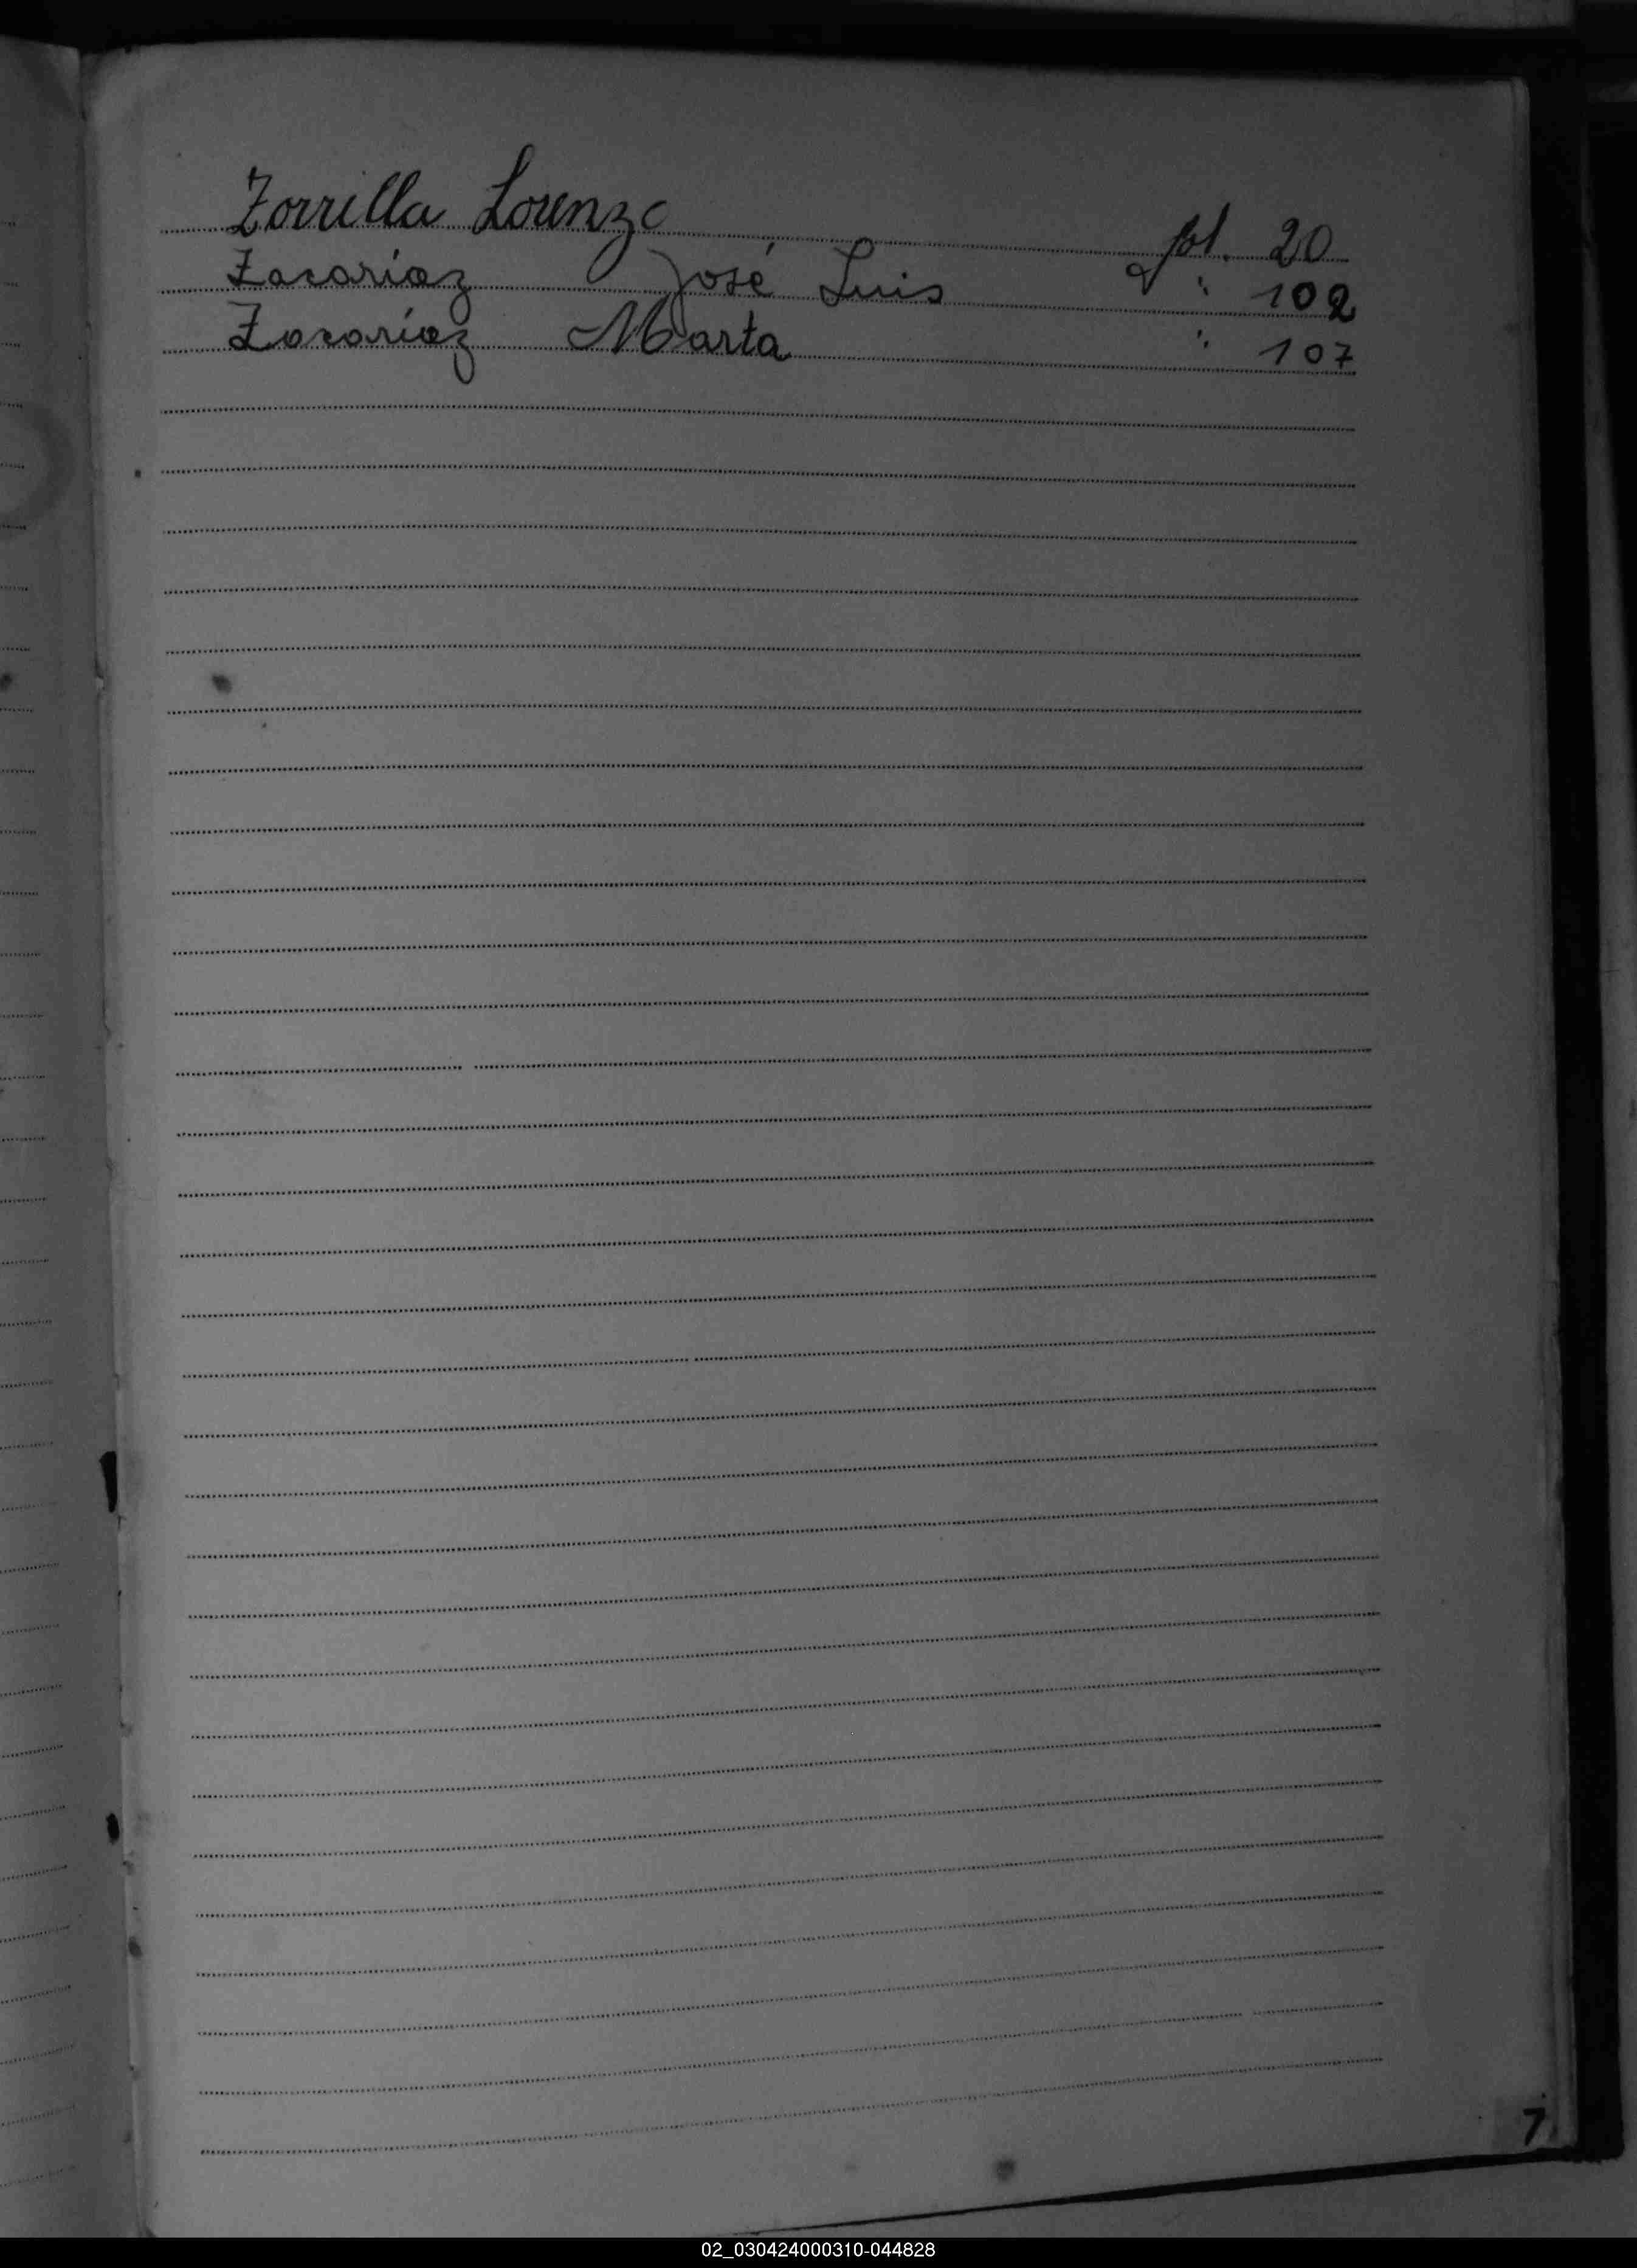 Zorrilla Lorenzo fol. 20
Zacariaz José Luis " 102
Zacaríaz Marta " 107
7
02_030424000310-044828